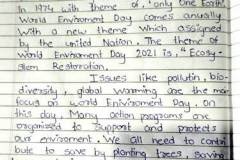 In 1974 with theme of, "only one Earth"
World Environment Day comes anually
with a new theme which assigned
by the united Nation. The theme of
World Environment Day 2021 is "Ecosy-
stem Restoration.
Issues like pollutin, bio-
diversity, global warming are the main
focus on world Enviroment Day. On
this day, Many action programs are
organised to support and protects
our enviroment. We all need to contri
bute to save by planting trees, saving